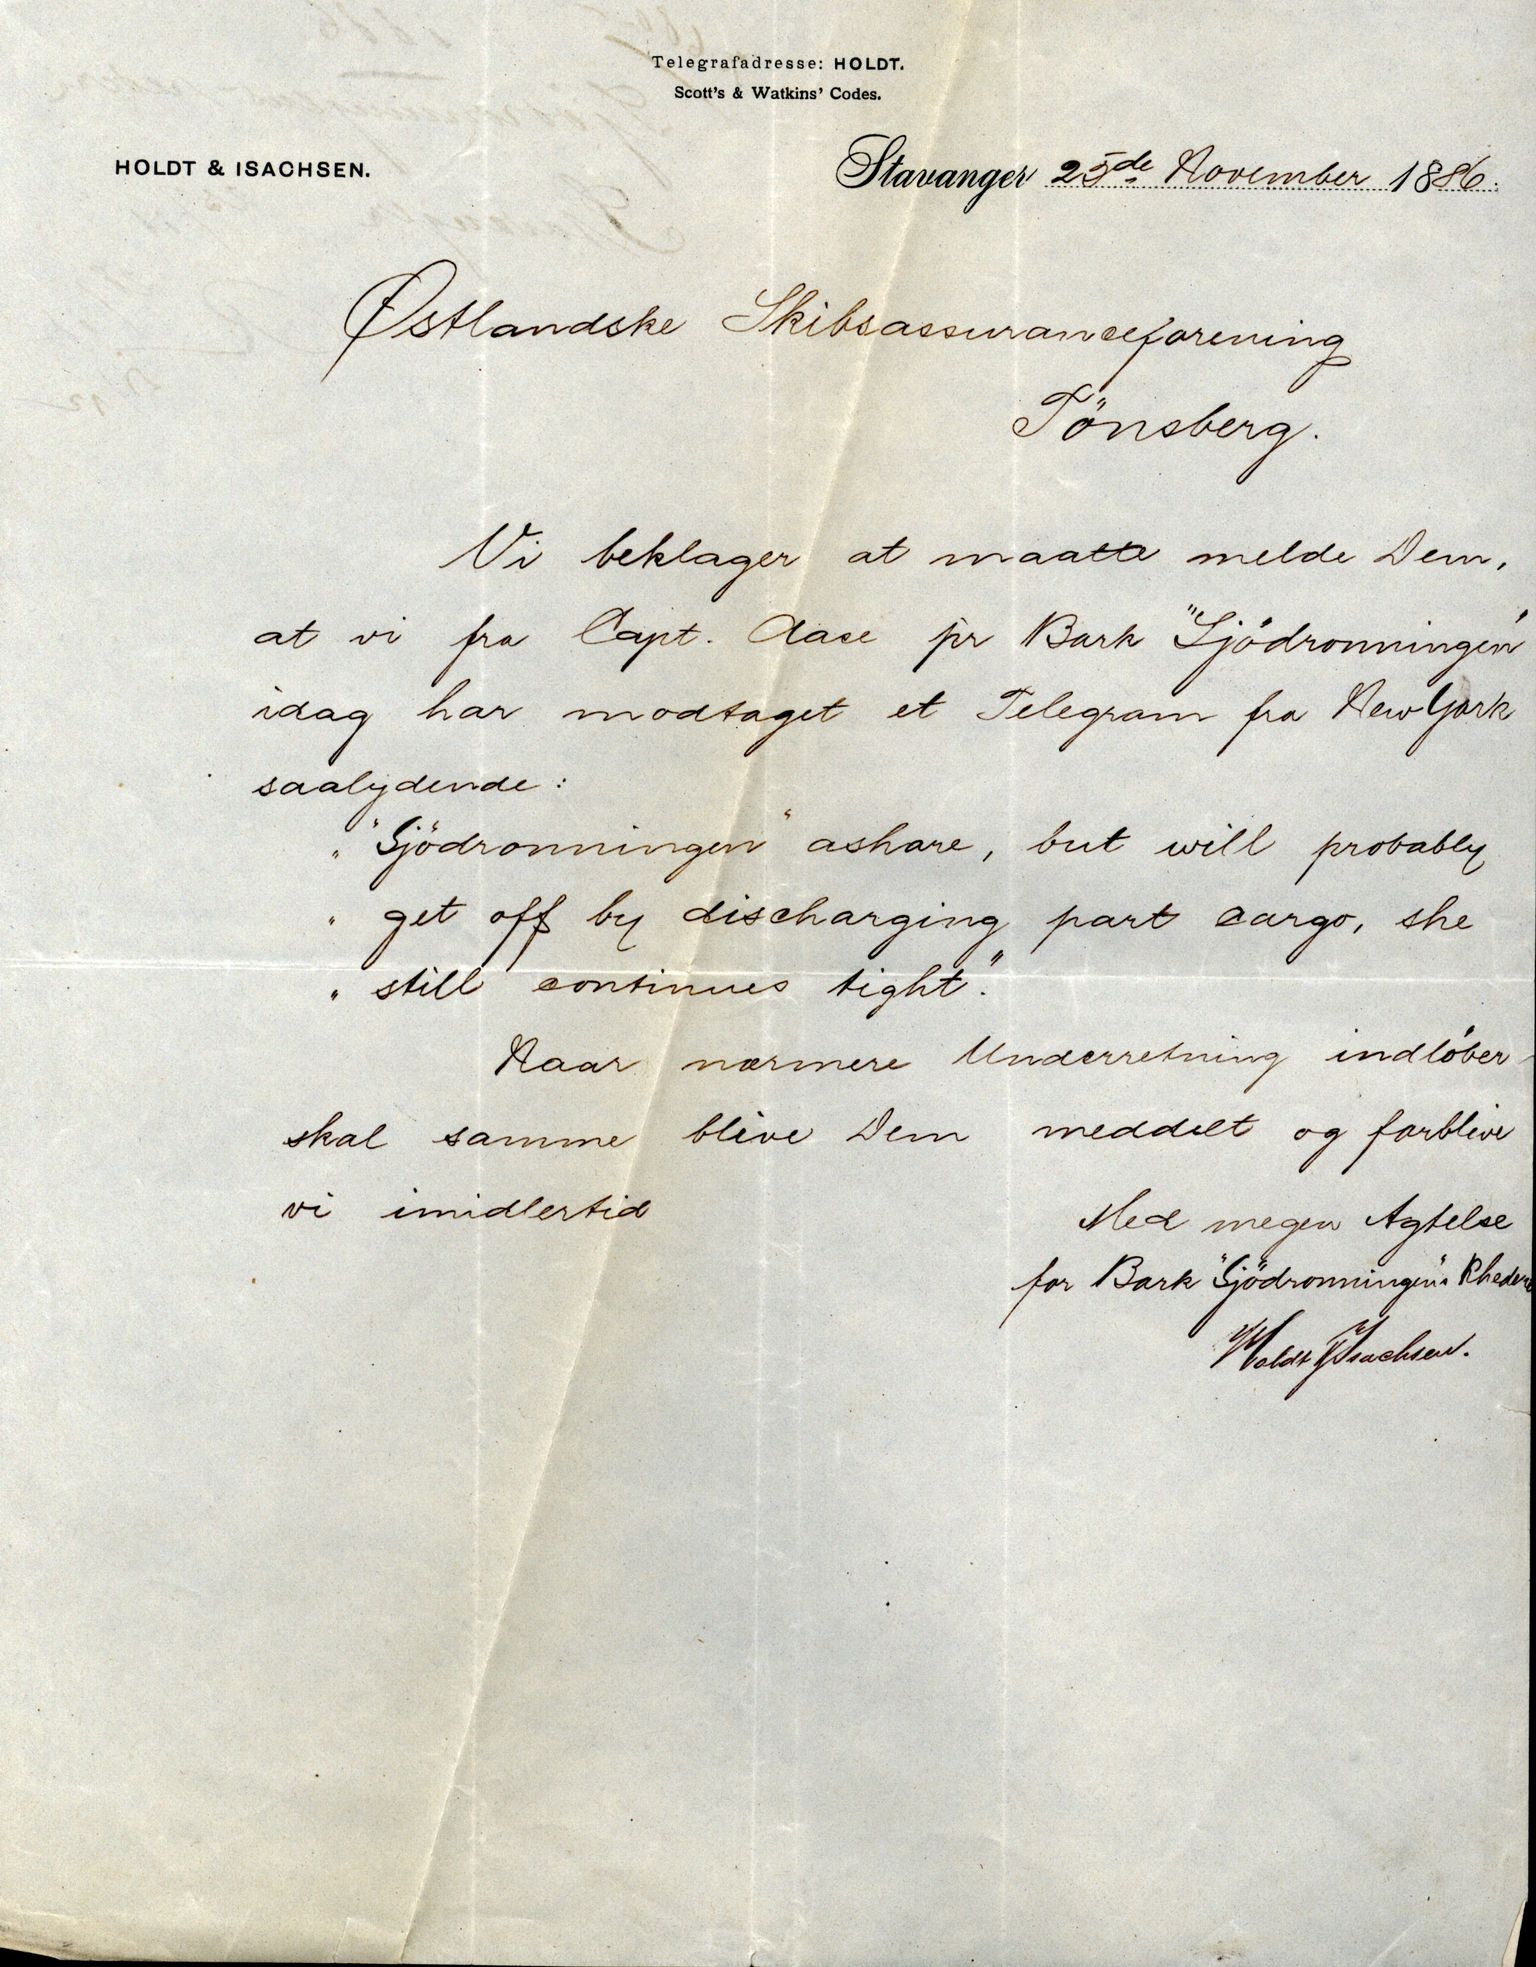 Telegrafadresse: HOLDT.
Scott's & Watkins' Codes.
HOLDT & ISACHSEN.
Stavanger 25de November 1886.
Østlandske Skibsassuranceforening
Tönsberg.
Vi beklager at maatte melde Dem,
at vi fra Capt. Aase pr Bark "Sjödronningen"
idag har modtaget et Telegram fra New York
saalydende:
" "Sjödronningen" ashore, but will probably
" get off by discharging part cargo, she
" still continues tight".
Naar nærmere Underretning indlöber
skal samme blive Dem meddelt og forblive
vi imidlertid
Med megen Agtelse
for Bark "Sjödronningen"s Rhederi
Holdt & Isachsen.